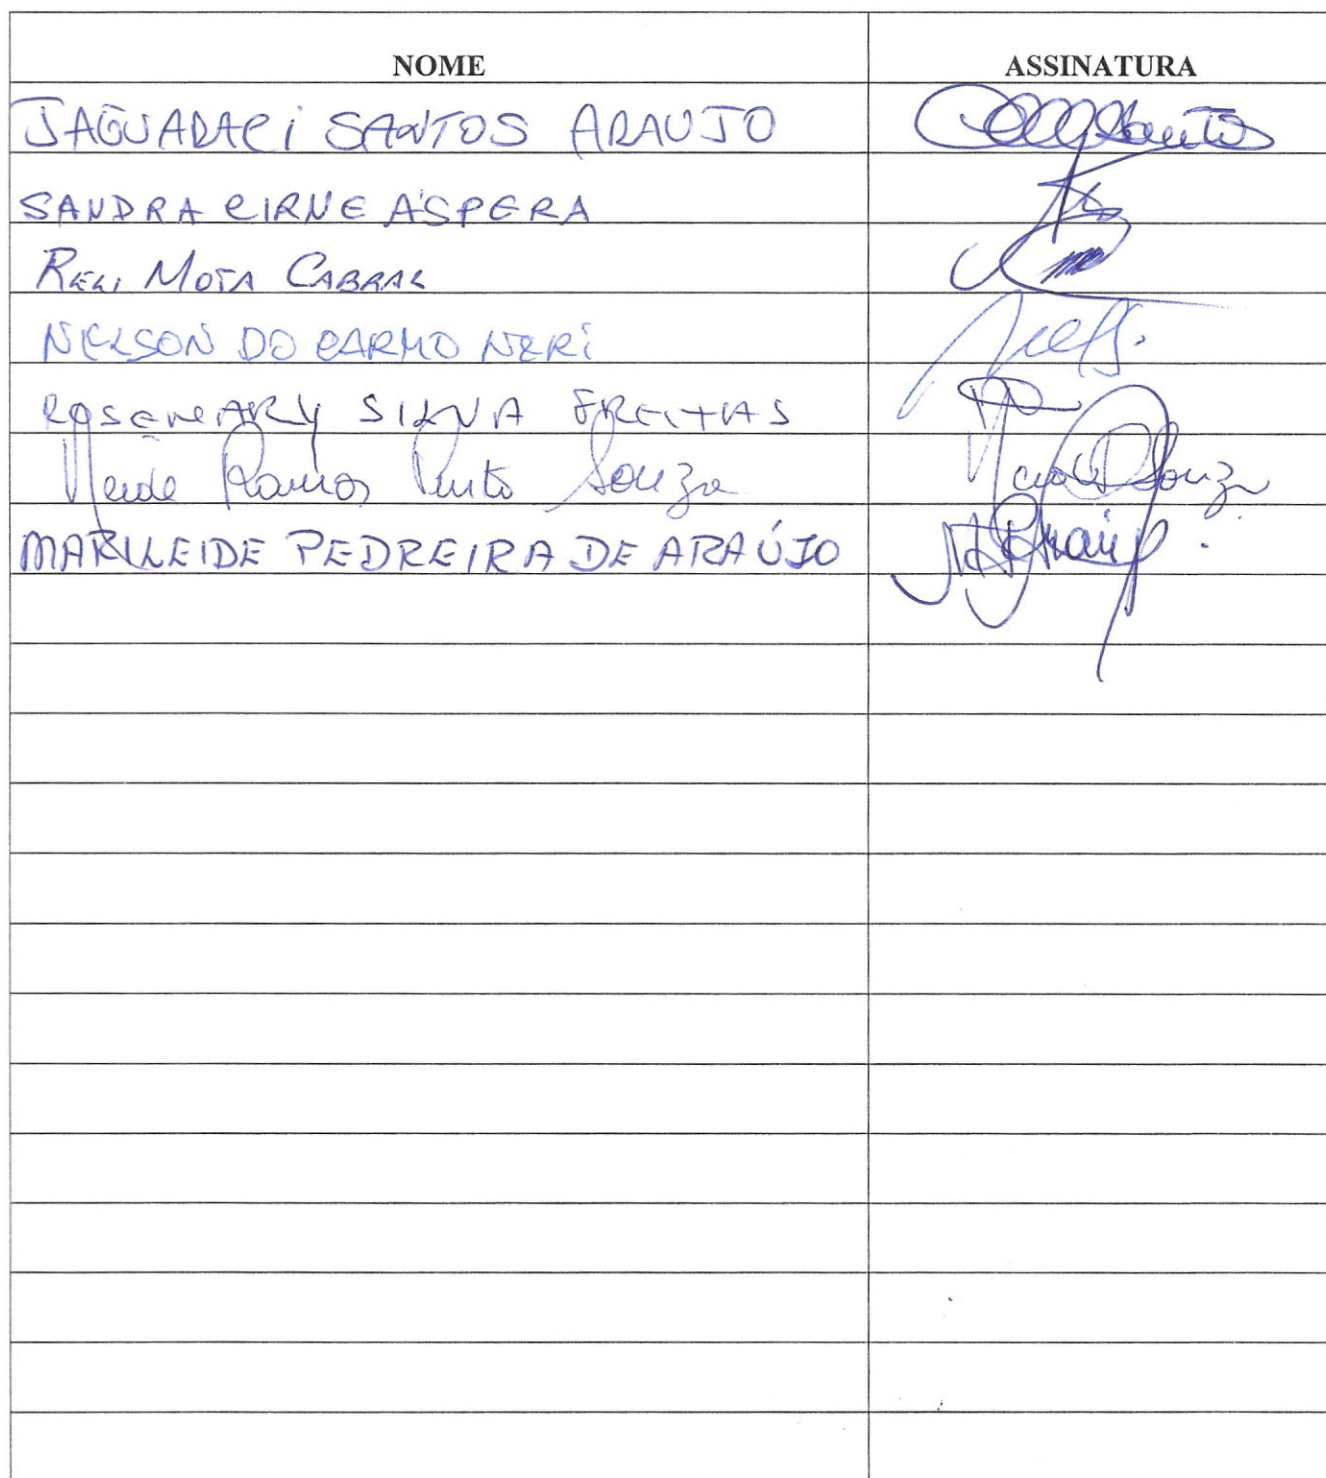 NOME ASSINATURA
JAGUARACI SANTOS ARAUJO Santos
SANDRA CIRNE ÁSPERA
RELI MOTA CABRAL
NELSON DO CARMO NERI
ROSEMARY SILVA FREITAS
Neide Ramos Pinto Souza Souza
MARILEIDE PEDREIRA DE ARAÚJO